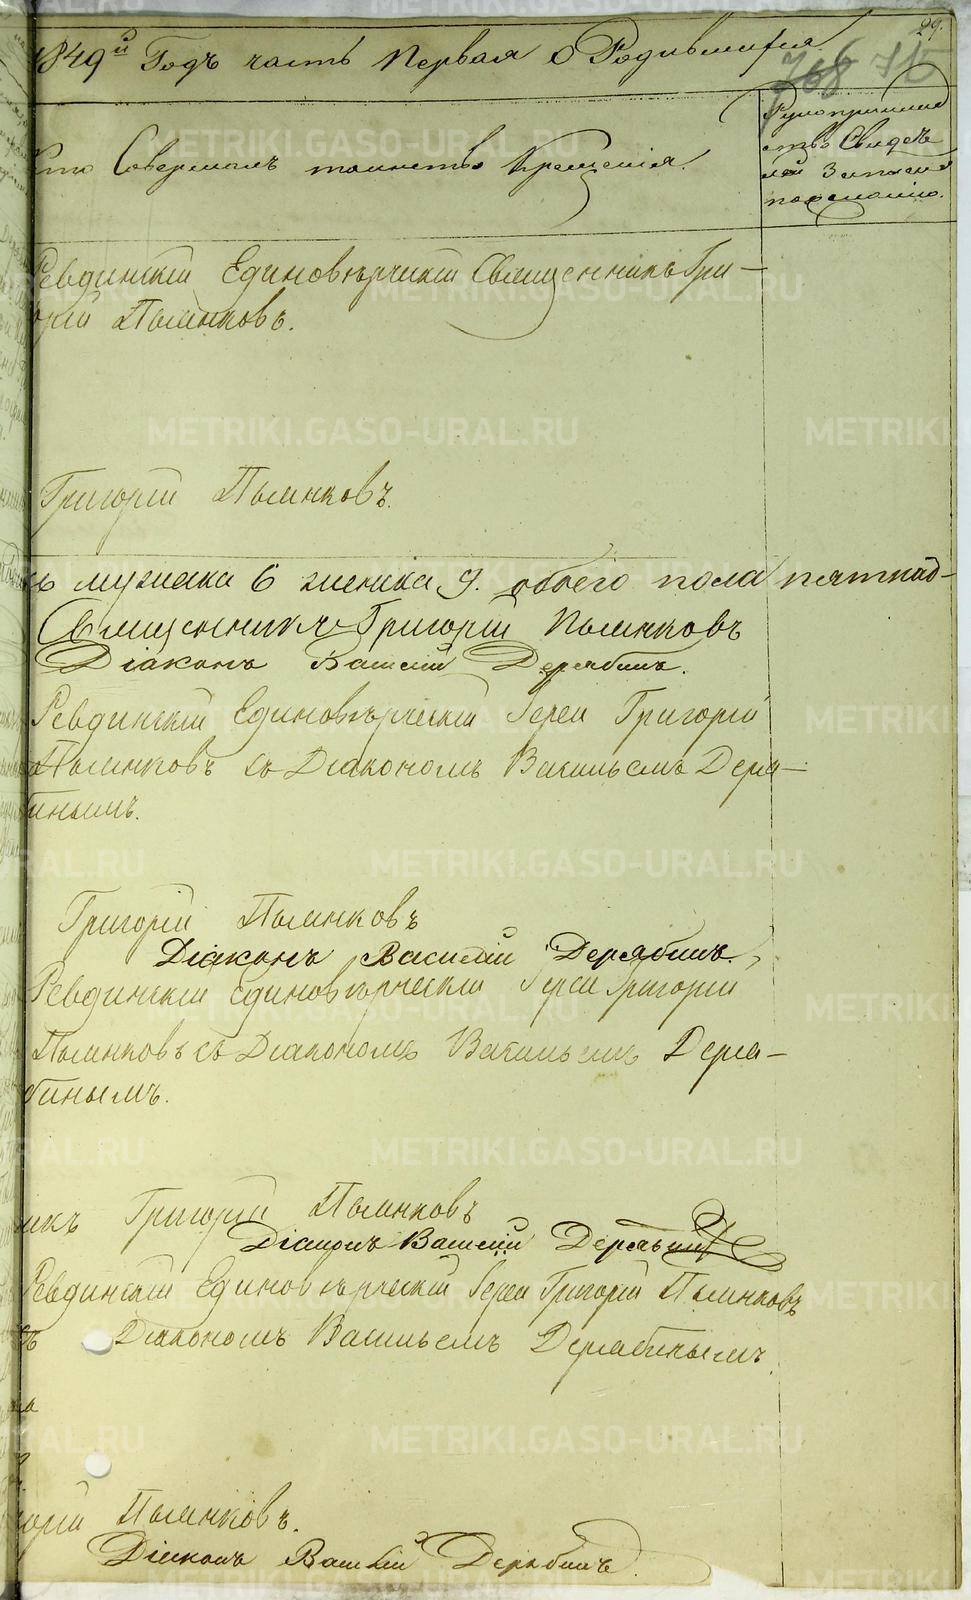 29.
1849й Годъ часть Первая о Родившихся
768
Кто Совершалъ таинство Крещенія.
Рукоприкладство Свидетелей Записки по желанію.
Ревдинскій Единоверческій Священникъ Гри-
горій Пьянковъ.
Григорій Пьянковъ.
мужска 6 женска 9. обоего пола пятнад-
Священникъ Григорій Пьянковъ
Діаконъ Василій Дерябинъ.
Ревдинскій Единоверческій Іерей Григорій
Пьянковъ съ Діакономъ Васильемъ Деря-
бинымъ.
Григорій Пьянковъ
Діаконъ Василій Дерябинъ.
Ревдинскій Единоверческій Іерей Григорій
Пьянковъ съ Діакономъ Васильемъ Деря-
бинымъ.
никъ Григорій Пьянковъ
Діаконъ Василій Дерябинъ
Ревдинскій Единоверческій Іерей Григорій Пьянковъ
съ Діакономъ Васильемъ Дерябинымъ.
горій Пьянковъ.
Діаконъ Василій Дерябинъ.
METRIKI.GASO-URAL.RU